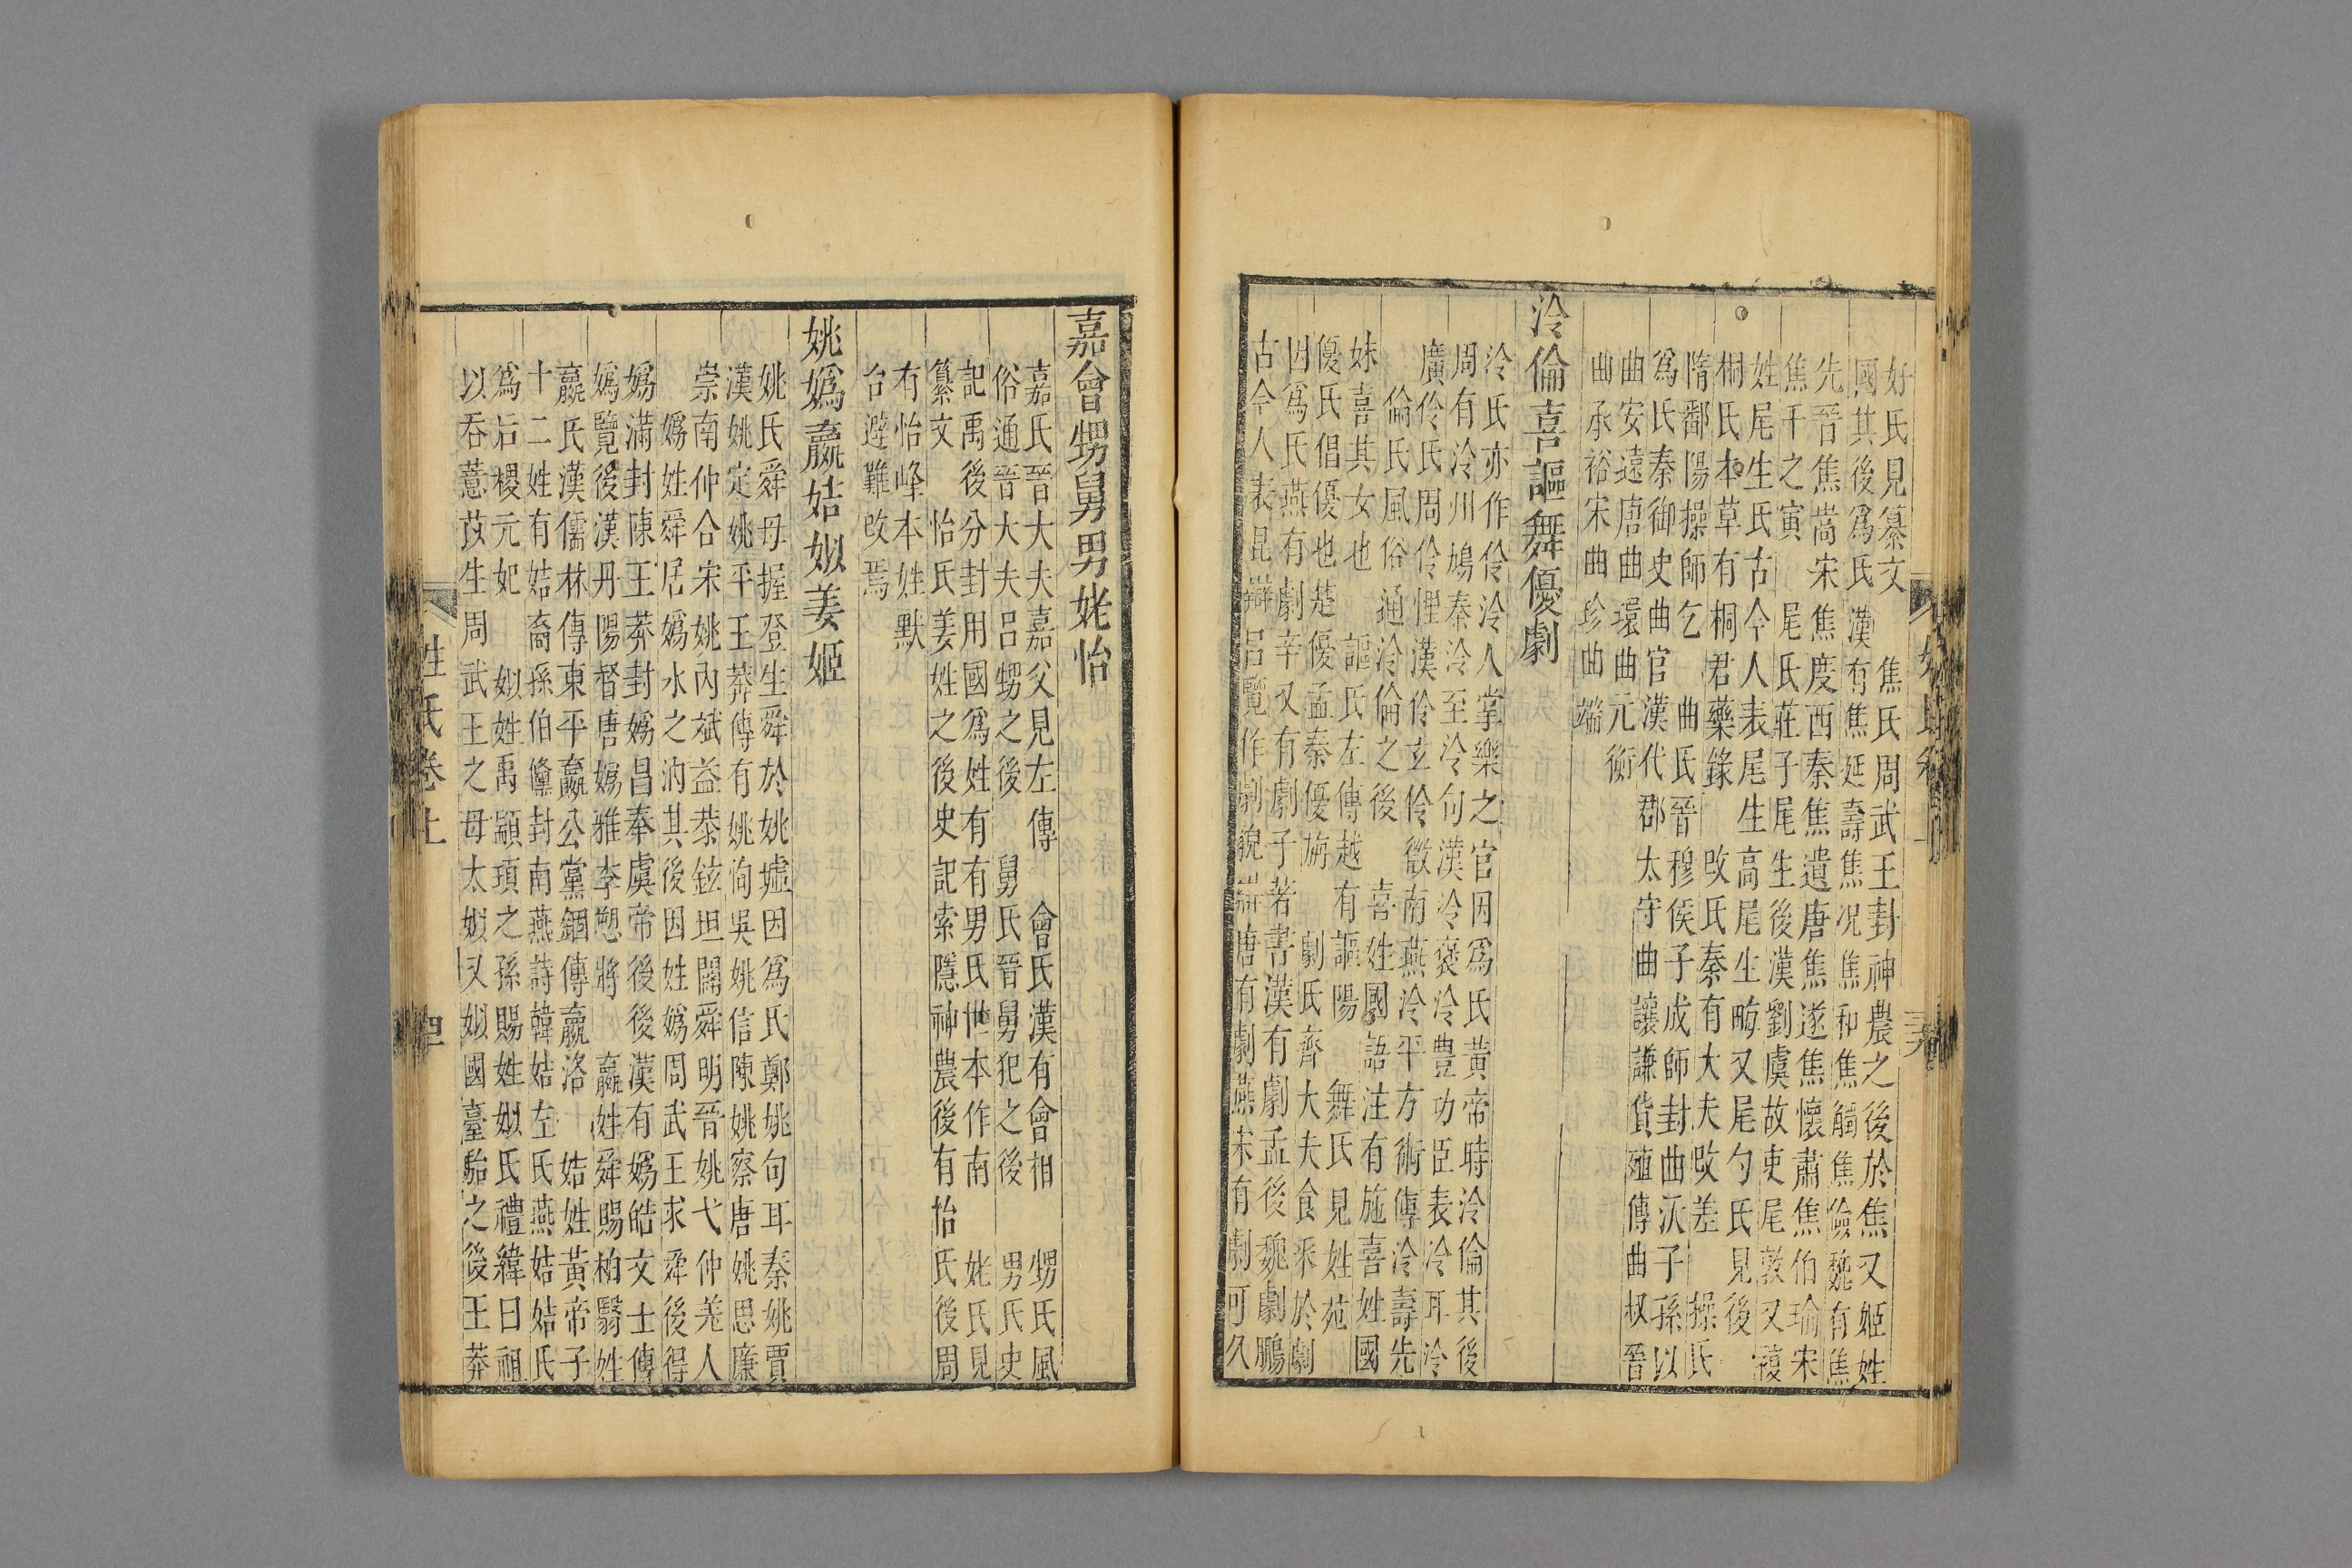 好氏見纂文　焦氏周武王封神農之後於焦又姬姓
國其後爲氏漢有焦延壽焦况焦和焦觸焦儉魏有焦
先晉焦嵩宋焦度西秦焦遺唐焦遂焦懷肅焦伯瑜宋
焦千之寅　尾氏莊子尾生後漢劉虞故吏尾敦又複
姓尾生氏古今人表尾生高尾生畮又尾勺氏見後
桐氏本草有桐君藥錄　改氏秦有大夫改差　操氏
隋鄱陽操師乞　曲氏晉穆侯子成師封曲沃子孫以
爲氏秦御史曲官漢代郡太守曲讓謙貨殖傳曲叔晉
曲安遠唐曲環曲元衡
曲承裕宋曲珍曲端
泠倫喜謳舞優劇
泠氏亦作伶泠人掌樂之官因爲氏黃帝時泠倫其後
周有泠州鳩秦泠至泠句漢泠褒泠豊功臣表泠耳泠
廣伶氏周伶悝漢伶玄伶徵南燕泠平方術傳泠壽先
倫氏風俗通泠倫之後　喜姓國語注有施喜姓國
妹喜其女也　謳氏左傳越有謳陽　舞氏見姓苑
優氏倡優也楚優孟秦優旃　劇氏齊大夫食釆於劇
因爲氏燕有劇辛又有劇子著書漢有劇孟後魏劇鵬
古今人表昆辯呂覽作劇貌辯唐有劇燕宋有劇可久
嘉會甥舅男姥怡
嘉氏晉大夫嘉父見左傳　會氏漢有會相　甥氏風
俗通晉大夫呂甥之後　舅氏晉舅犯之後　男氏史
記禹後分封用國爲姓有有男氏世本作南　姥氏見
纂文　怡氏姜姓之後史記索隱神農後有怡氏後周
有怡峰本姓默
台避難改焉
姚嬀嬴姞姒姜姬
姚氏舜母握登生舜於姚墟因爲氏鄭姚句耳秦姚賈
漢姚定姚平王莽傳有姚恂吳姚信陳姚察唐姚思廉
崇南仲合宋姚內斌益恭鉉坦闢舜明晉姚弋仲羌人
嬀姓舜居嬀水之汭其後因姓嬀周武王求舜後得
嬀滿封陳王莽封嬀昌奉虞帝後後漢有嬀皓文士傳
嬀覽後漢丹陽督唐嬀雅李愬將　嬴姓舜賜柏翳姓
嬴氏漢儒林傳東平嬴公黨錮傳嬴洛　姞姓黃帝子
十二姓有姞裔孫伯儵封南燕詩韓姞左氏燕姞姞氏
爲后稷元妃　姒姓禹顓頊之孫賜姓姒氏禮緯曰祖
以吞薏苡生周武王之母太姒又姒國臺駘之後王莽
姓氏卷上